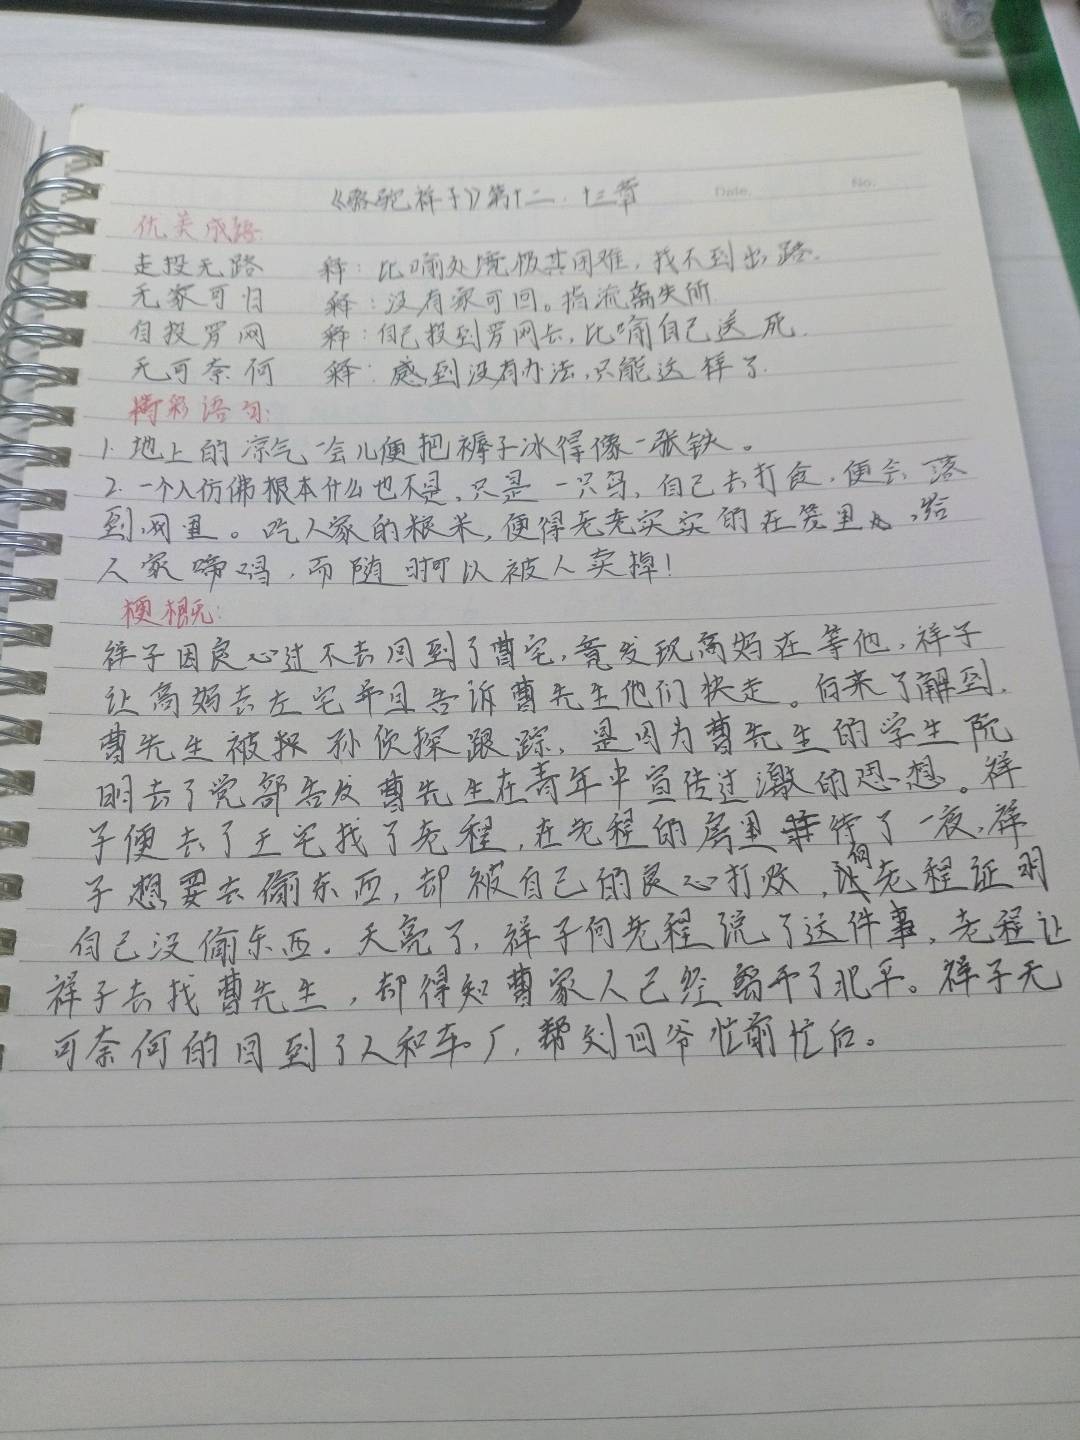 《骆驼祥子》第十二、十三章
Date.
No.
优美成语:
走投无路 释:比喻处境极其困难,找不到出路.
无家可归 释:没有家可回。指流离失所
自投罗网 释:自己投到罗网去,比喻自己送死.
无可奈何 释:感到没有办法,只能这样了.
精彩语句:
1. 地上的凉气一会儿便把裤子冰得像一张铁。
2. 一个人仿佛根本什么也不是,只是一只鸟,自己去打食,便会落
到网里。吃人家的粮米,便得老老实实的在笼里儿,给
人家啼唱,而随时可以被人卖掉!
梗概:
祥子因良心过不去回到了曹宅,竟发现高妈在等他,祥子
让高妈去左宅并且告诉曹先生他们快走。后来了解到,
曹先生被报孙侦探跟踪,是因为曹先生的学生阮
明去了党部告发曹先生在青年中宣传过激的思想。祥
子便去了王宅找了老程,在老程的房里待了一夜,祥
子想要去偷东西,却被自己的良心打败,向老程证明
自己没偷东西。天亮了,祥子向老程说了这件事,老程让
祥子去找曹先生,却得知曹家人已经离开了北平。祥子无
可奈何的回到了人和车厂,帮刘四爷忙前忙后。